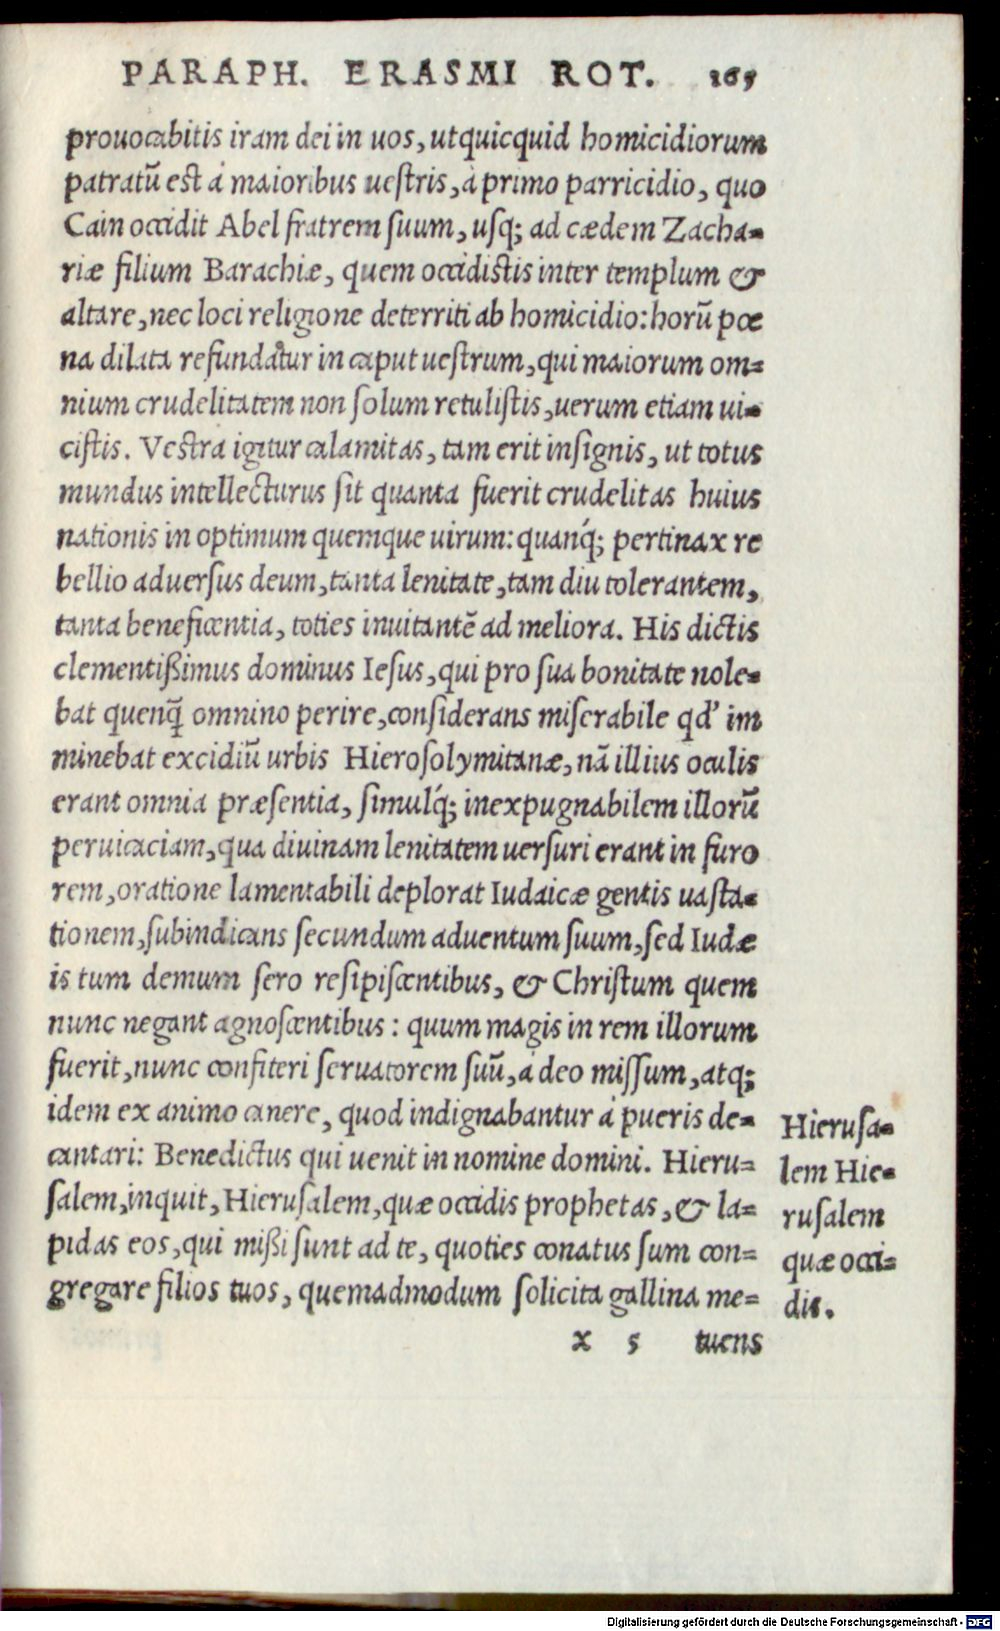 PARAPH. ERASMI ROT. 165
prouocabitis iram dei in uos, ut quicquid homicidiorum
patratũ est à maioribus uestris, à primo parricidio, quo
Cain occidit Abel fratrem suum, usq; ad cædem Zacha=
riæ filium Barachiæ, quem occidistis inter templum &
altare, nec loci religione deterriti ab homicidio: horũ pœ
na dilata refundatur in caput uestrum, qui maiorum om=
nium crudelitatem non solum retulistis, uerum etiam ui=
cistis. Vestra igitur calamitas, tam erit insignis, ut totus
mundus intellecturus sit quanta fuerit crudelitas huius
nationis in optimum quemque uirum: quanq́; pertinax re
bellio aduersus deum, tanta lenitate, tam diu tolerantem,
tanta beneficentia, toties inuitantẽ ad meliora. His dictis
clementißimus dominus Iesus, qui pro sua bonitate nole=
bat quenq̃ omnino perire, considerans miserabile qd' im
minebat excidiũ urbis Hierosolymitanæ, nã illius oculis
erant omnia præsentia, simulq́; inexpugnabilem illorũ
peruicaciam, qua diuinam lenitatem uersuri erant in furo
rem, oratione lamentabili deplorat Iudaicæ gentis uasta=
tionem, subindicans secundum aduentum suum, sed Iudæ
is tum demum sero resipiscentibus, & Christum quem
nunc negant agnoscentibus: quum magis in rem illorum
fuerit, nunc confiteri seruatorem suũ, à deo missum, atq;
idem ex animo canere, quod indignabantur à pueris de=
cantari: Benedictus qui uenit in nomine domini. Hieru=
salem, inquit, Hierusalem, quæ occidis prophetas, & la=
pidas eos, qui mißi sunt ad te, quoties conatus sum con=
gregare filios tuos, quemadmodum solicita gallina me=
x 5 tuens
Hierusa=
lem Hie=
rusalem
quæ occi=
dis.
Digitalisierung gefördert durch die Deutsche Forschungsgemeinschaft - DFG